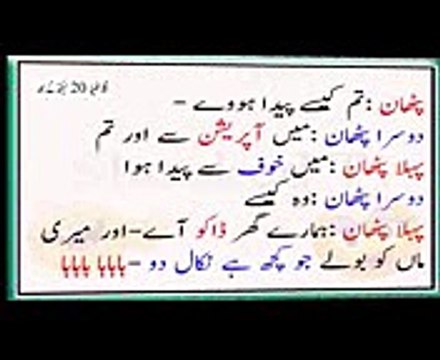 پٹھان :تم کیسے پیدا ہووے -
دوسرا پٹھان :میں آپریشن سے اور تم
پہلا پٹھان :میں خوف سے پیدا ہوا
دوسرا پٹھان :وہ کیسے
پہلا پٹھان :ہمارے گھر ڈاکو آے-اور میری
ماں کو بولے جو کچھ ہے نکال دو -ہاہاہا ہاہاہا